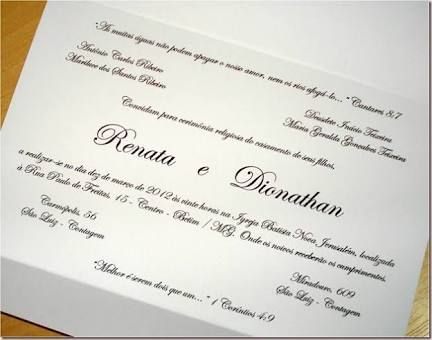 "As muitas águas não podem apagar o nosso amor, nem os rios afogá-lo..." Cantares 8:7
Antônio Carlos Ribeiro
Marilece dos Santos Ribeiro
Deusdete Inácio Teixeira
Maria Geralda Gonçalves Teixeira
Convidam para cerimônia religiosa do casamento de seus filhos,
Renata e Dionathan
a realizar-se no dia dez de março de 2012 às vinte horas na Igreja Batista Nova Jerusalém, localizada
à Rua Paulo de Freitas, 15 - Centro - Betim / MG. Onde os noivos receberão os cumprimentos.
Carmópolis, 56
São Luiz - Contagem
Miradouro, 609
São Luiz - Contagem
"Melhor é serem dois que um..." 1 Coríntios 4:9